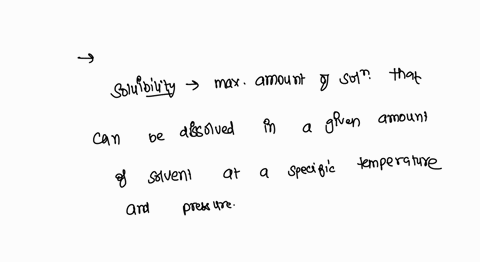 →
Soluibility → max. amount of solⁿ. that
can be dissolved in a given amount
of solvent at a specific temperature
and pressure.